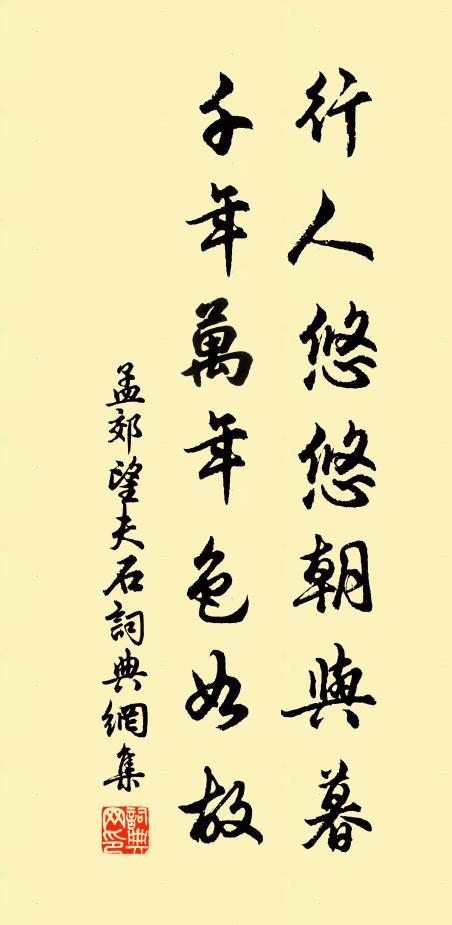 行人悠悠朝與暮
千年萬年色如故
孟郊望夫石詞典網集
詞典網印